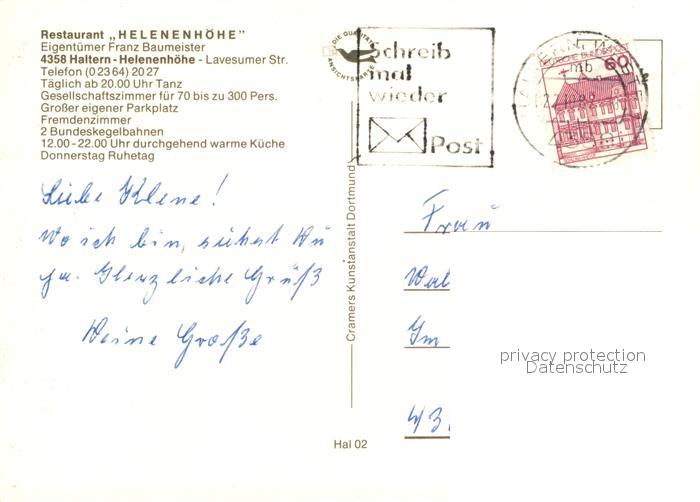 Restaurant „HELENENHÖHE"
Eigentümer Franz Baumeister
4358 Haltern-Helenenhöhe - Lavesumer Str.
Telefon (0 23 64) 20 27
Täglich ab 20.00 Uhr Tanz
Gesellschaftszimmer für 70 bis zu 300 Pers.
Großer eigener Parkplatz
Fremdenzimmer
2 Bundeskegelbahnen
12.00 - 22.00 Uhr durchgehend warme Küche
Donnerstag Ruhetag
Liebe Klene!
Wo ich bin, siehst Du
ja. Herzliche Grüße
Deine Große
Cramers Kunstanstalt Dortmund
Hal 02
DIE QUALITÄTS
ANSICHTSKARTE
Schreib
mal
wieder
Post
60
Frau
Wal
Im
43
privacy protection
Datenschutz